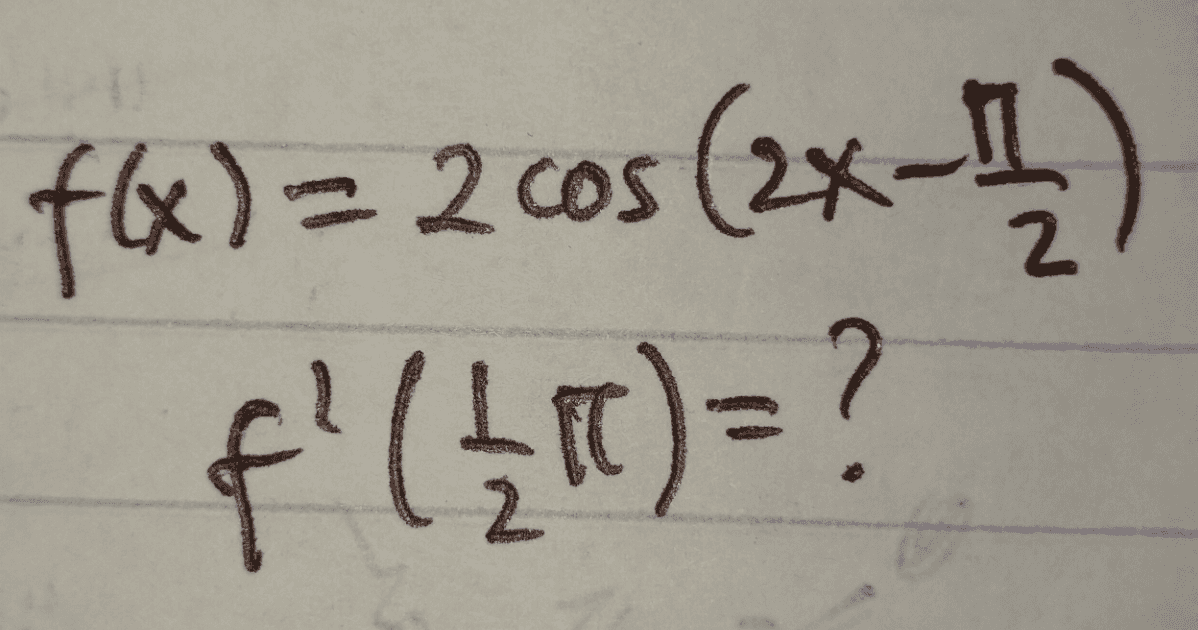 f(x) = 2 cos (2x - π/2)
f'(1/2 π) = ?